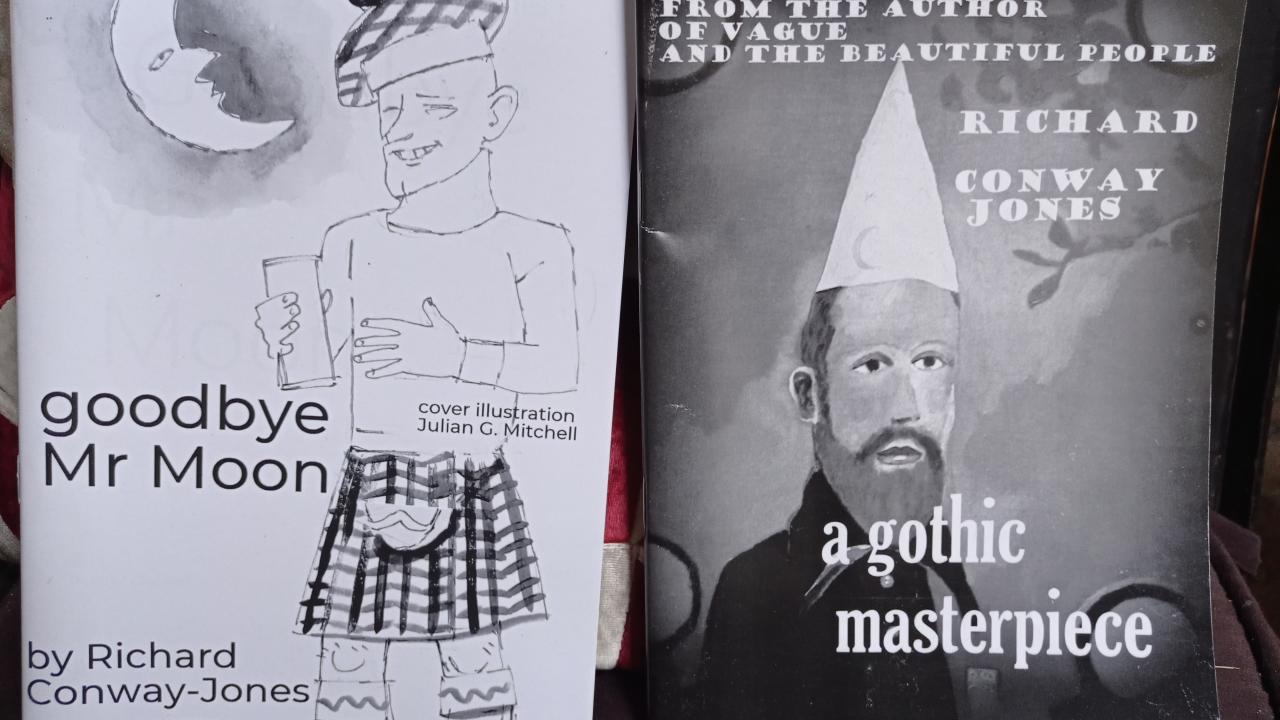 goodbye
Mr Moon
cover illustration
Julian G. Mitchell
by Richard
Conway-Jones
FROM THE AUTHOR
OF VAGUE
AND THE BEAUTIFUL PEOPLE
RICHARD
CONWAY
JONES
a gothic
masterpiece